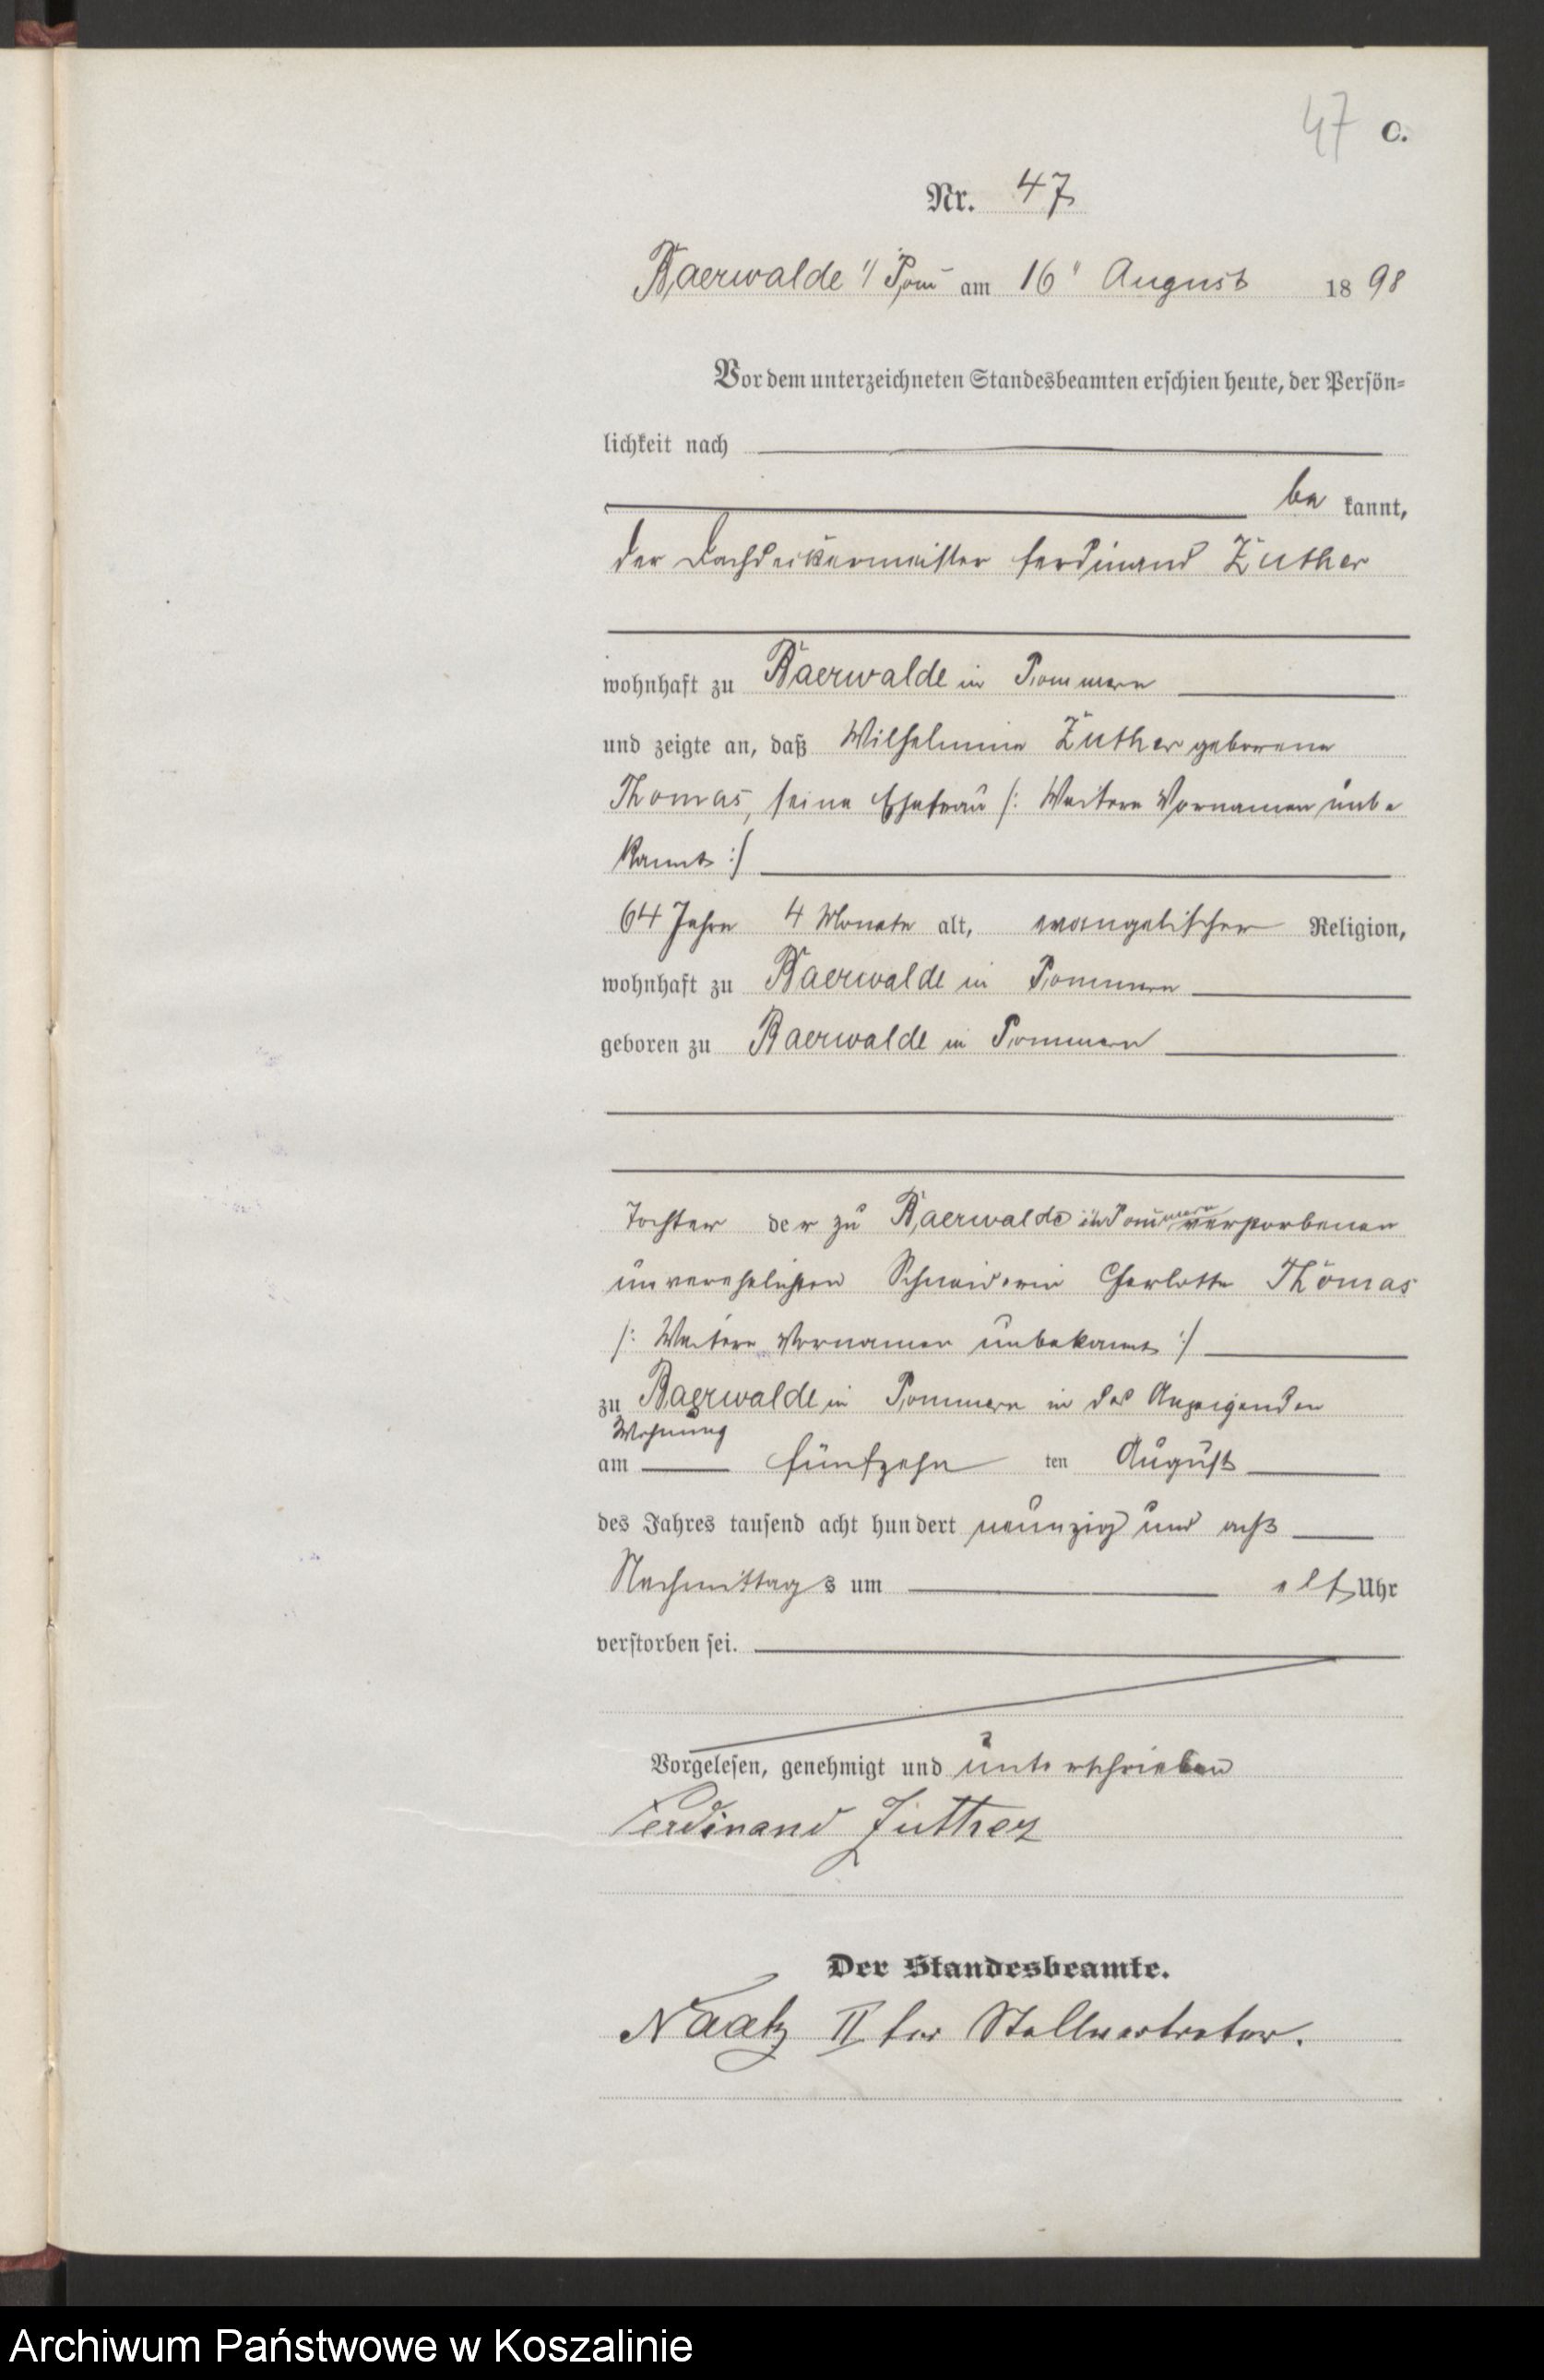 47 C.
Nr. 47
Baerwalde i/Pom am 16" August 1898
Vor dem unterzeichneten Standesbeamten erschien heute, der Persön-
lichkeit nach
be kannt,
der Dachdeckermeister Ferdinand Zuther
wohnhaft zu Baerwalde in Pommern
und zeigte an, daß Wilhelmine Zuther geborene
Thomas, seine Ehefrau /: Weitere Vornamen unbe
kannt :/
64 Jahre 4 Monate alt, evangelischer Religion,
wohnhaft zu Baerwalde in Pommern
geboren zu Baerwalde in Pommern
Tochter der zu Baerwalde in Pommern verstorbenen
unverehelichten Schneiderin Charlotte Thomas
/: Weitere Vornamen unbekannt :/
zu Baerwalde in Pommern in des Anzeigenden
Wohnung
am fünfzehn ten August
des Jahres tausend acht hundert neunzig und acht
Nachmittags um elf Uhr
verstorben sei.
Vorgelesen, genehmigt und unterschrieben
Ferdinand Zuther
Der Standesbeamte.
Naatz II ter Stellvertreter.
Archiwum Państwowe w Koszalinie